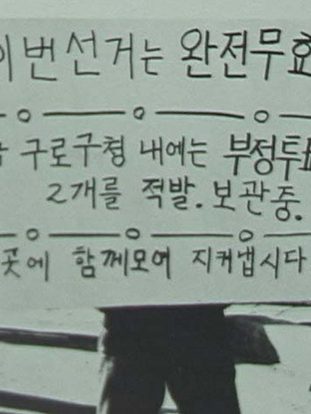 이번선거는 완전무효
구로구청 내에는 부정투표
2개를 적발. 보관중.
곳에 함께모여 지켜냅시다